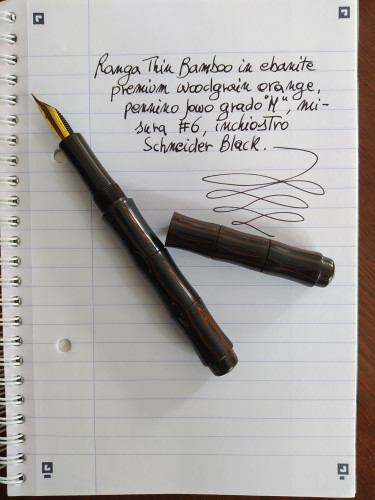 Ranga Thin Bamboo in ebanite
premium woodgrain orange,
pennino Jowo grado "M", mi-
sura #6, inchiostro
Schneider Black.